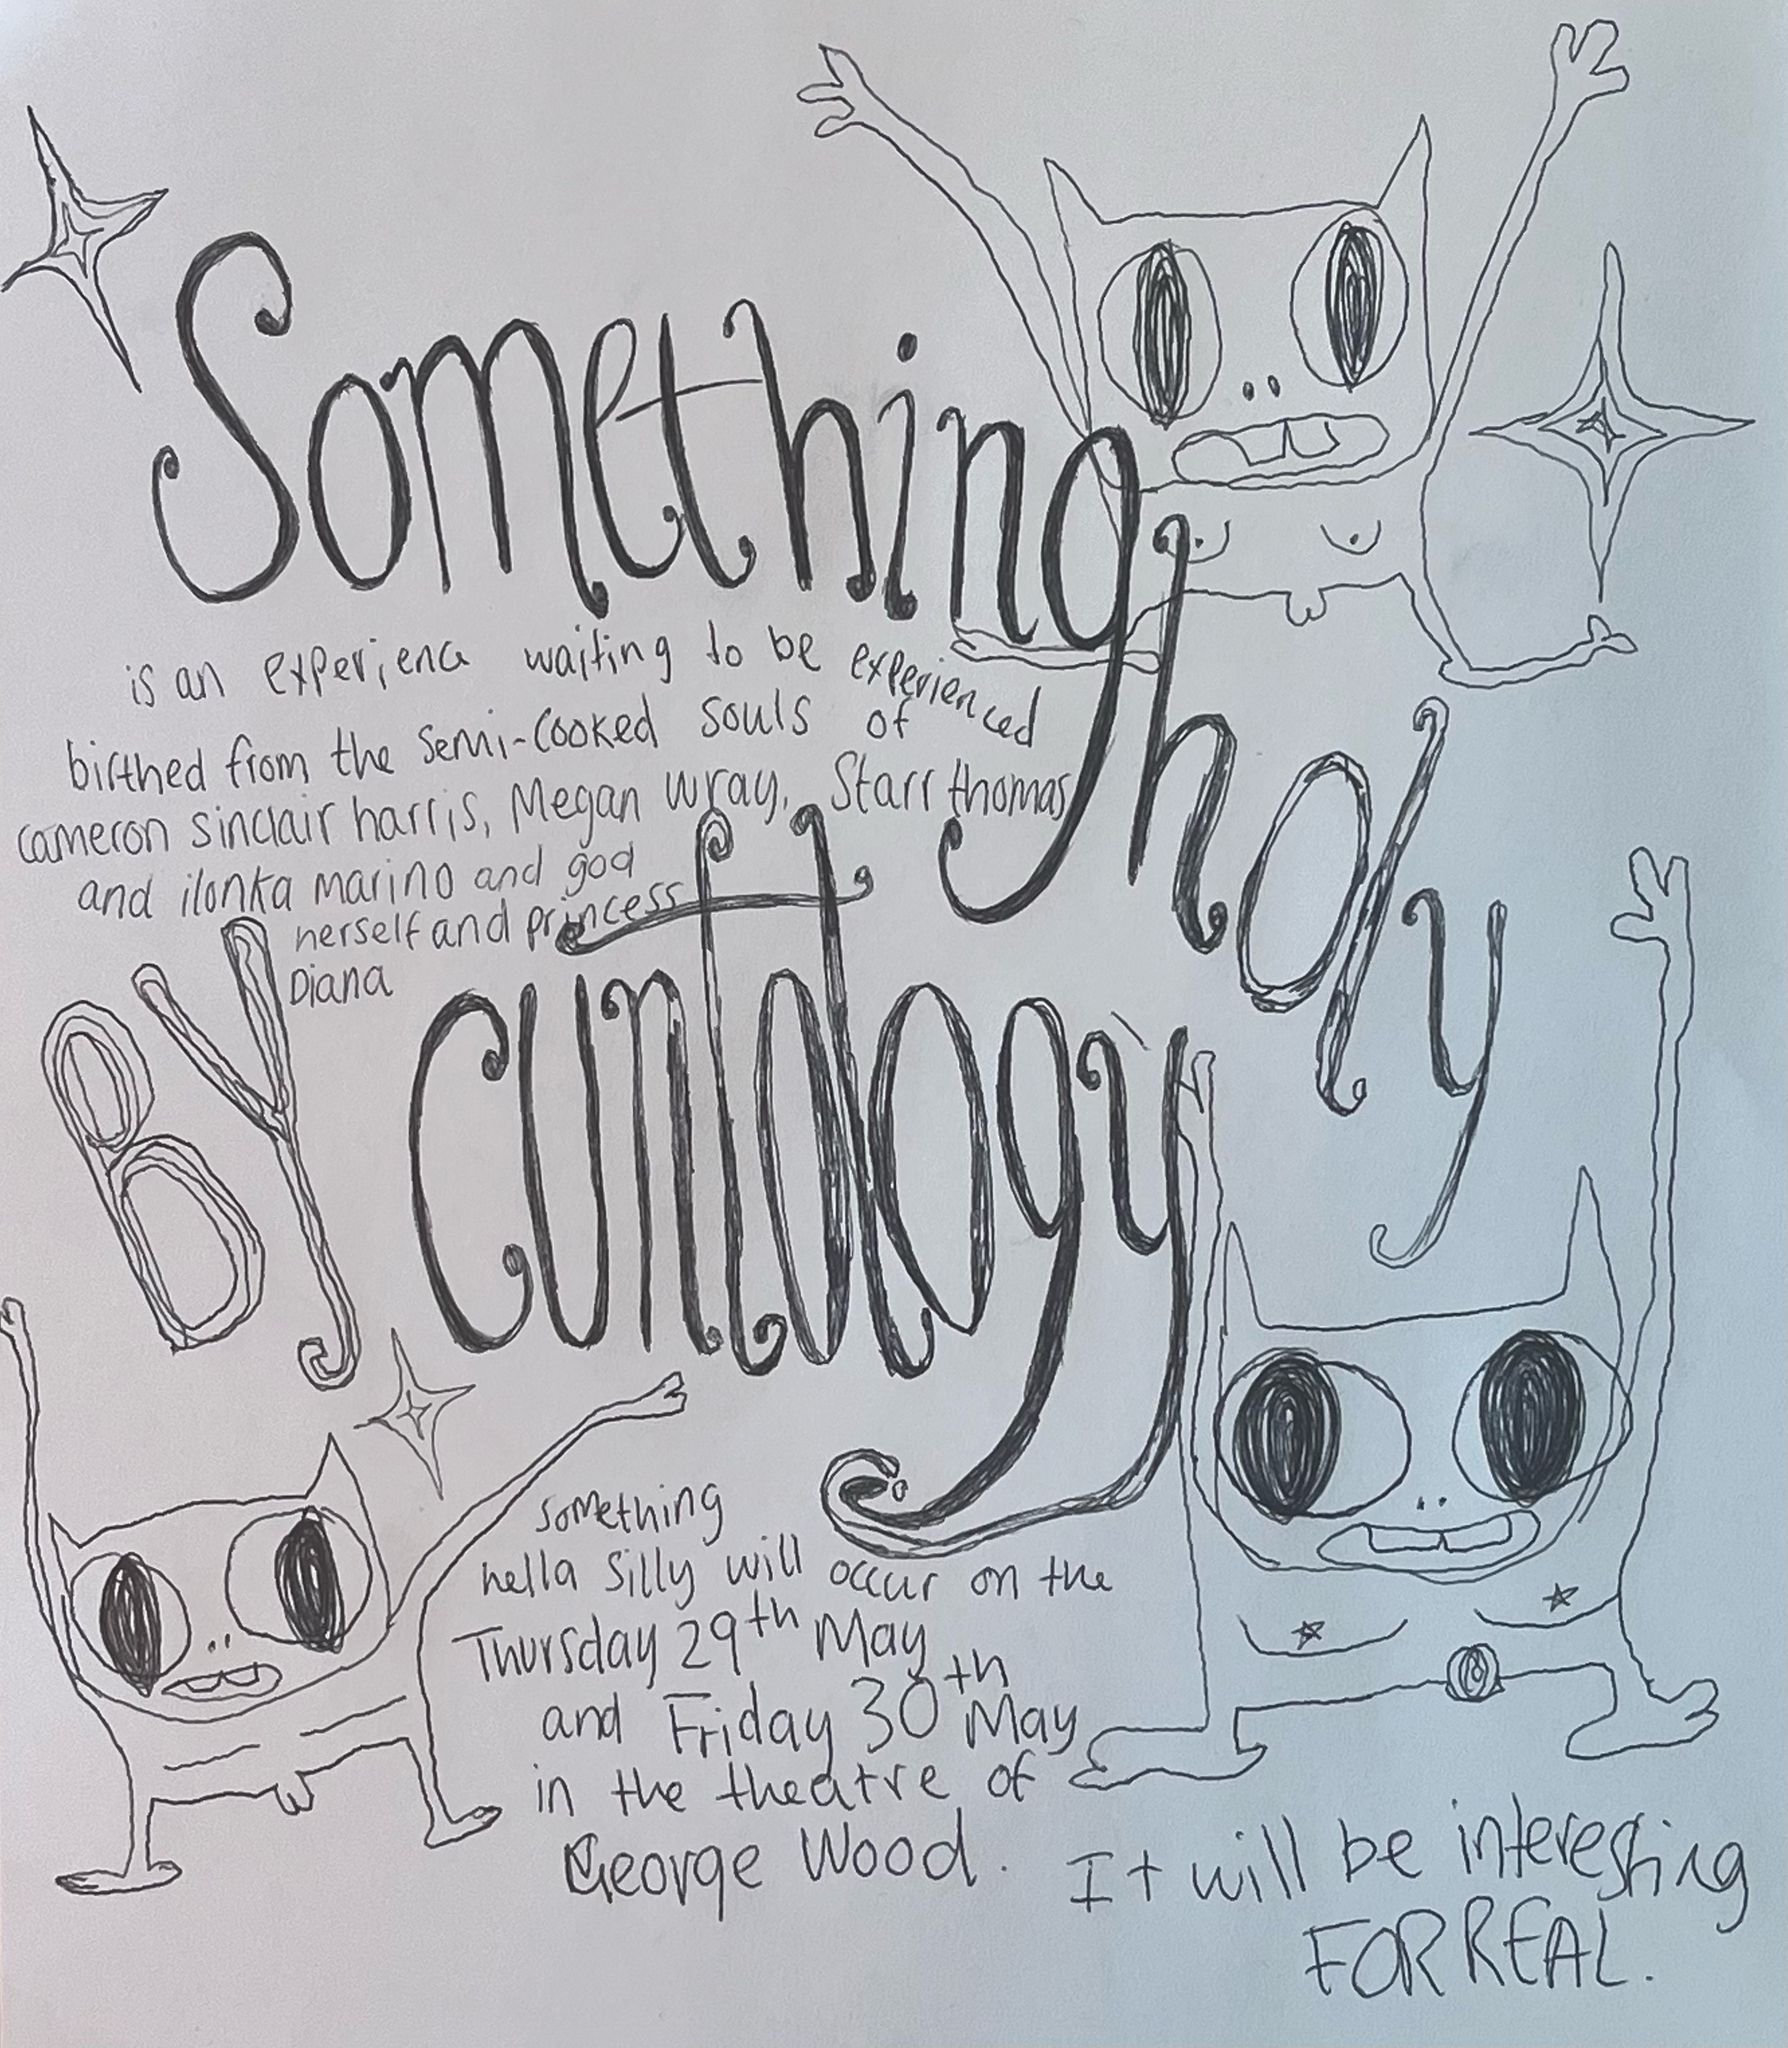 Something
holy
is an experience waiting to be experienced
birthed from the semi-cooked souls of
cameron sinclair harris, Megan Wray, Starr thomas
and ilonka marino and god
herself and princess
Diana
BY cuntology
something
hella silly will occur on the
Thursday 29th May
and Friday 30th May
in the theatre of
George Wood.
It will be interesting
FOR REAL.